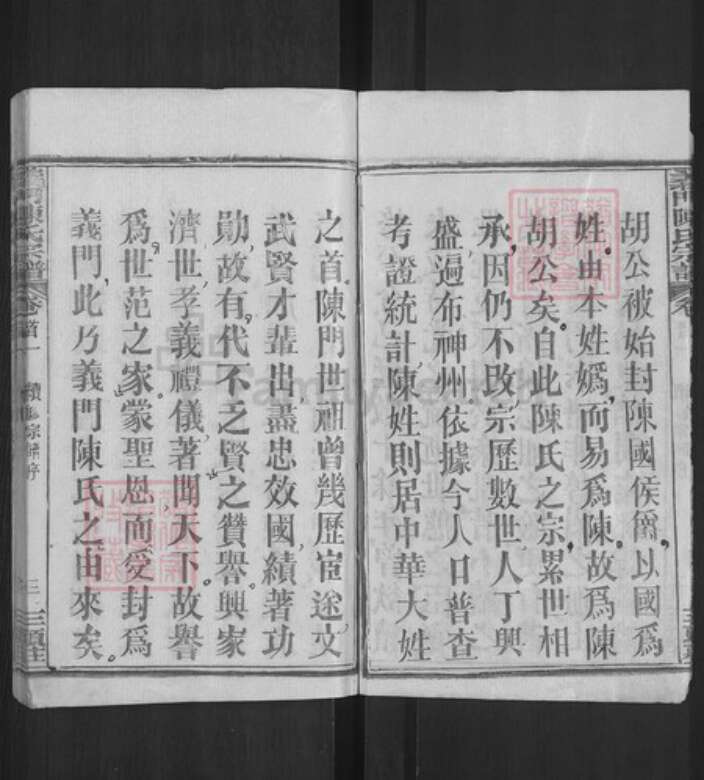 胡公被始封陳國侯爵,以國爲
姓。由本姓媯,而易爲陳。故爲陳
胡公矣。自此陳氏之宗,累世相
承,因仍不改宗,歷數世人丁興
盛,遍布神州,依據今人口普查
考證統計,陳姓則居中華大姓
之首。陳門世祖曾幾歷宦途,文
武賢才輩出,盡忠效國,績著功
勛,故有代不乏賢之贊譽。興家
濟世,孝義禮儀著聞天下。故譽
爲世范之家,蒙聖恩而愛封爲
義門,此乃義門陳氏之由來矣。
義門陳氏宗譜
卷首一
續修宗譜序
三